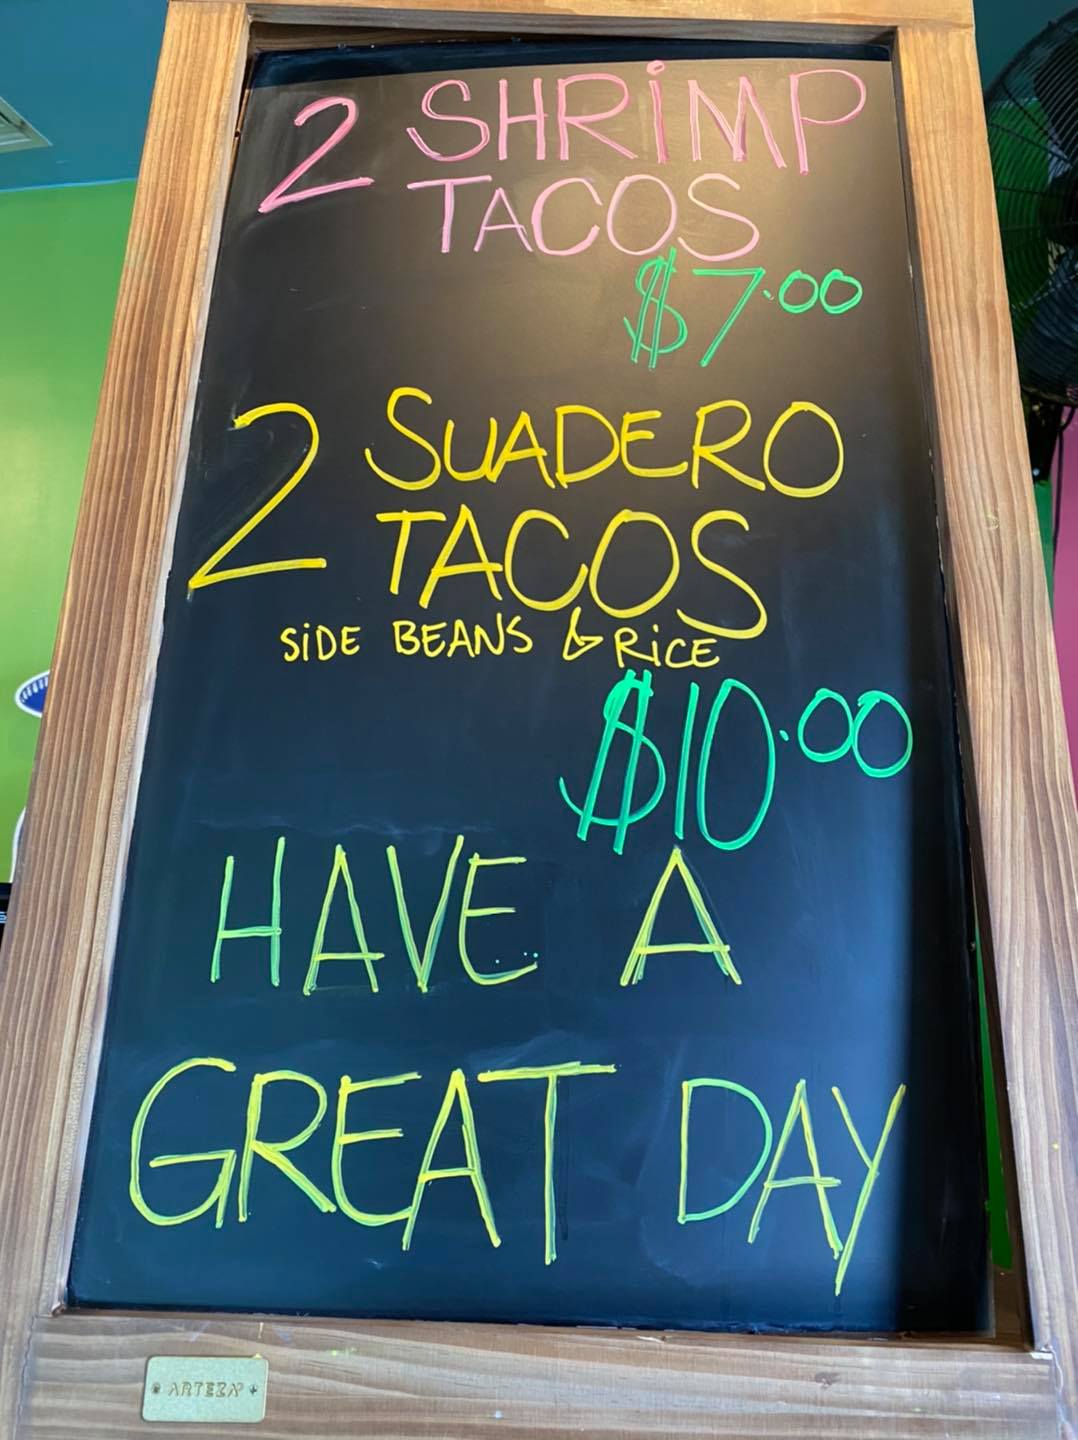 2 SHRiMP
TACOS
$7.00
2 SUADERO
TACOS
SiDE BEANS & RiCE
$10.00
HAVE A
GREAT DAY
ARTEZA